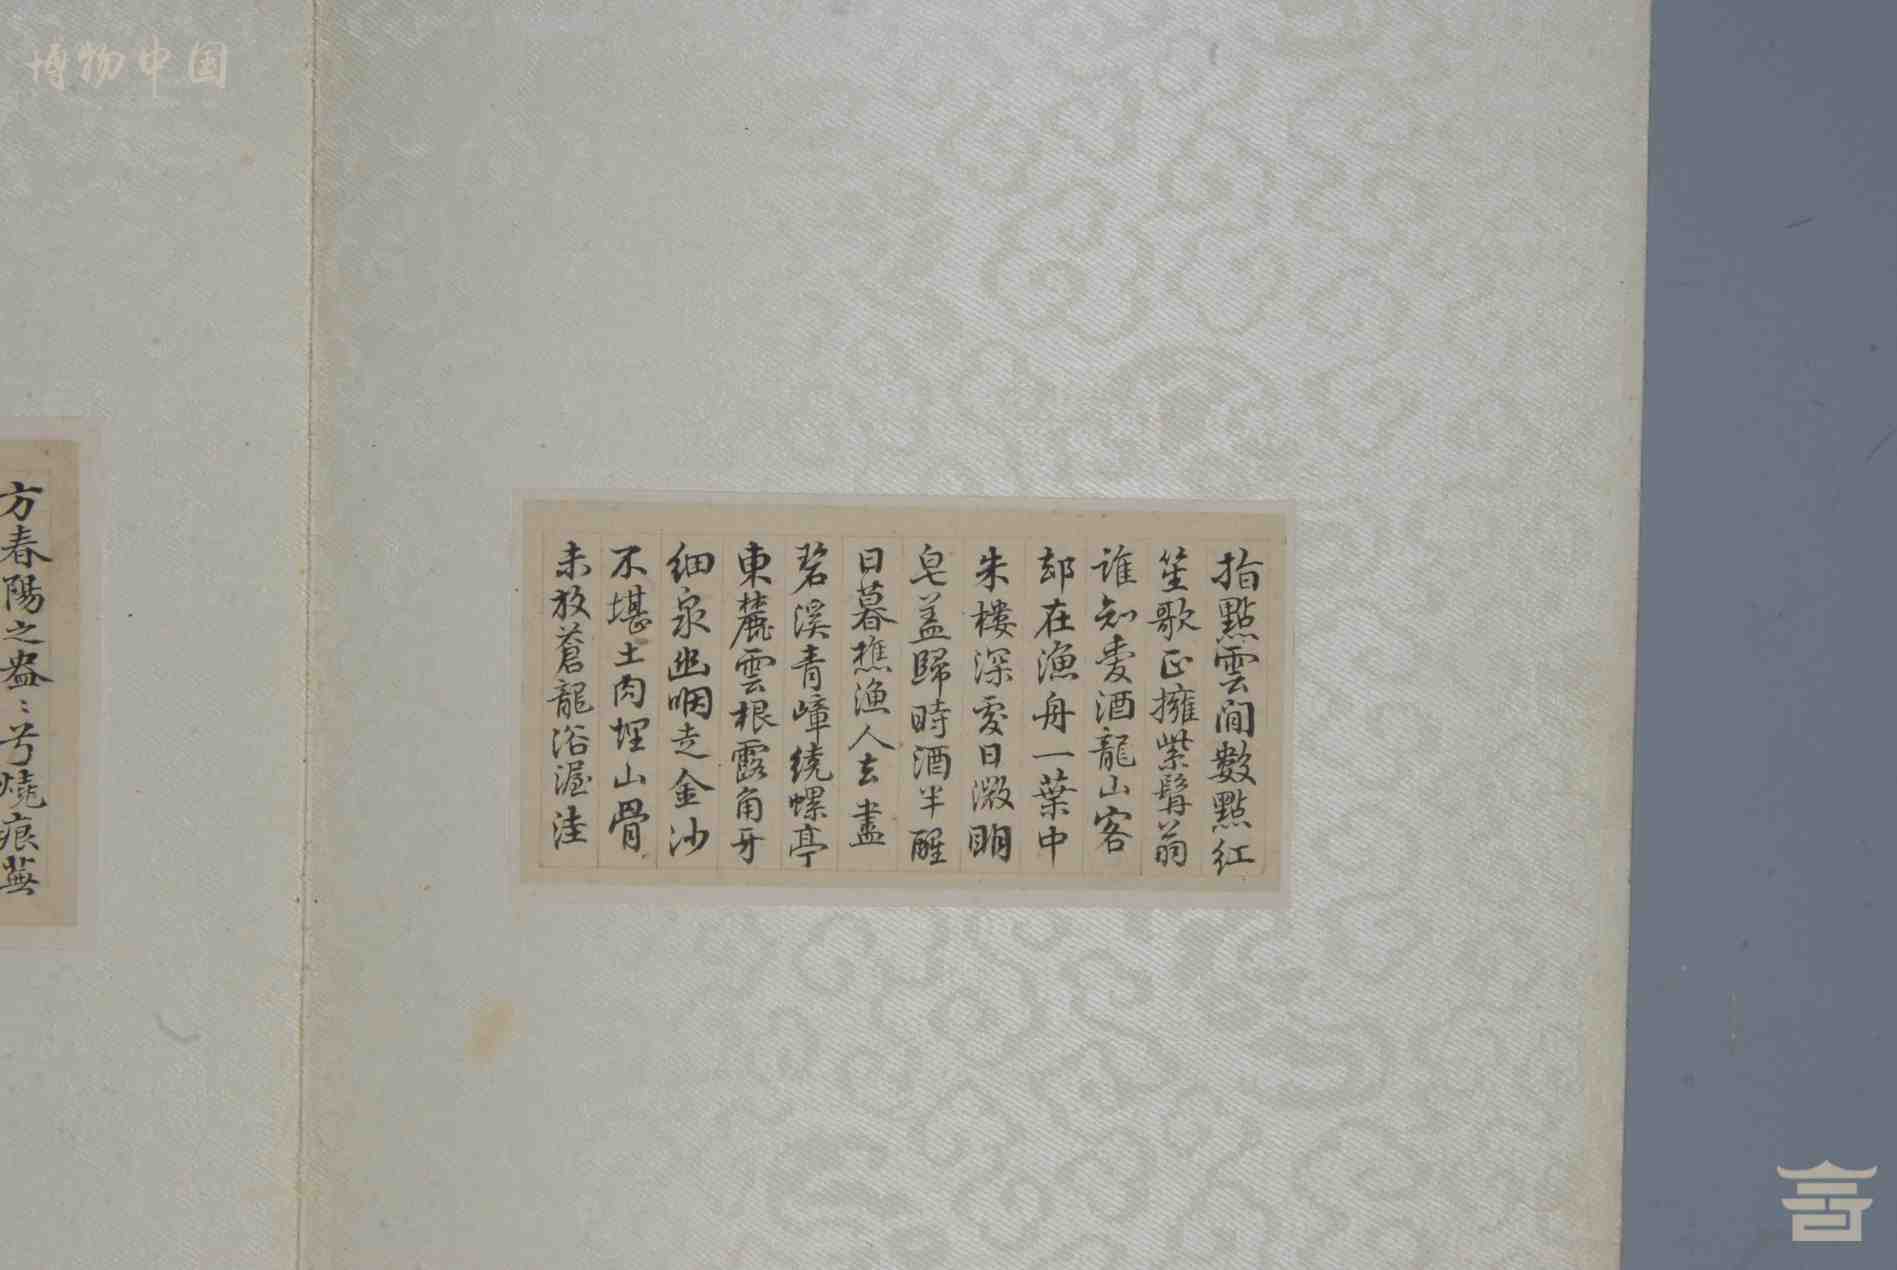 博物中国
指點雲間數點紅
笙歌正擁紫髯翁
誰知愛酒龍山客
却在漁舟一葉中
朱樓深處日微明
皂蓋歸時酒半醒
日暮樵漁人去盡
碧溪青嶂繞螺亭
東麓雲根露角牙
細泉幽咽走金沙
不堪土肉埋山骨
未放蒼龍浴渥洼
方春陽之盎〻兮燒痕蕪